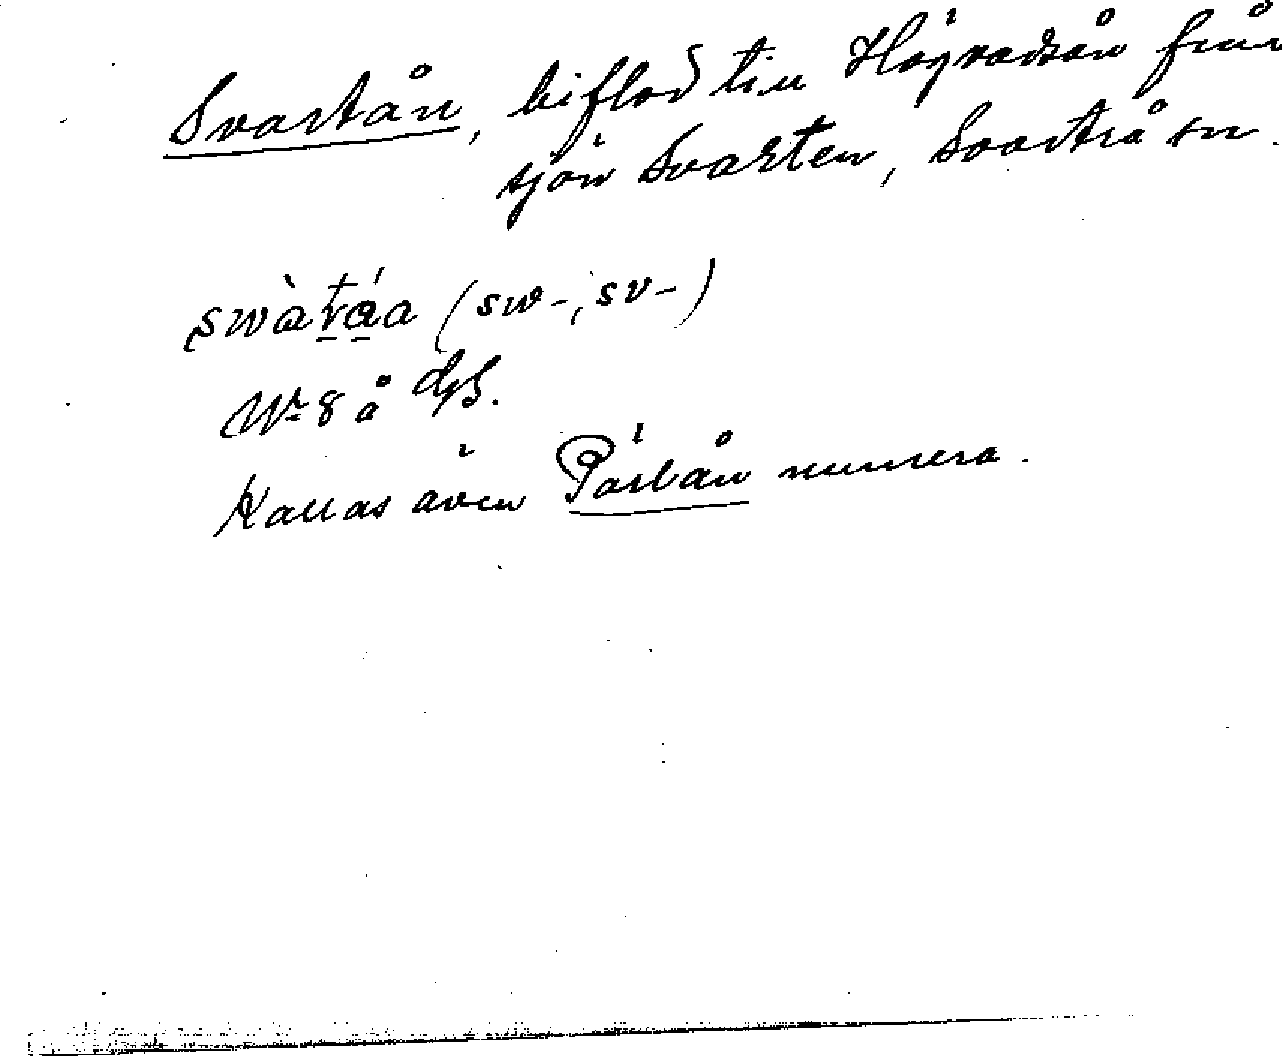 Svartån, biflod till Högvadsån från
sjön Svarten, Svartrå sn.
swàtáa (sw-, sv-)
Nr 8 å
Kallas även Pärlån numera.